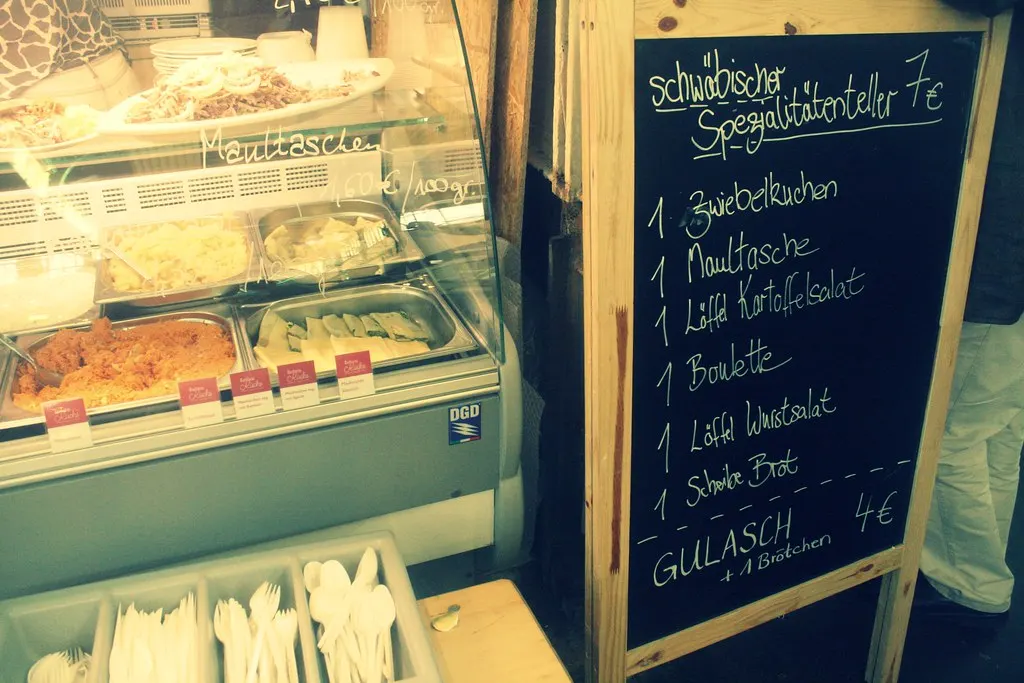 Maultaschen
1,60 €/100gr.
DGD
schwäbischer
Spezialitätenteller 7€
1 Zwiebelkuchen
1 Maultasche
1 Löffel Kartoffelsalat
1 Boulette
1 Löffel Wurstsalat
1 Scheibe Brot
GULASCH 4€
+ 1 Brötchen